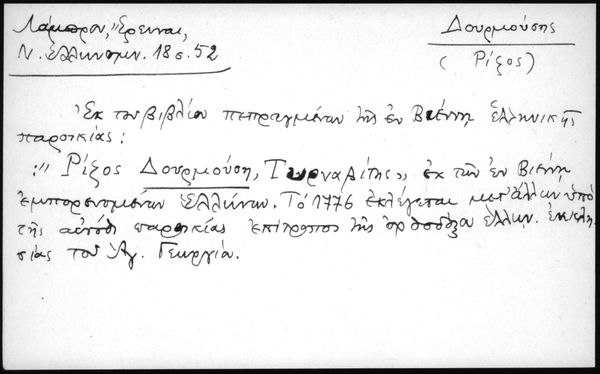 Λάμπρου, Ἔρευναι,
Ν. Ἑλληνομν. 18 σ. 52
Δουρμούσης
(Ρίζος)
Ἐκ του βιβλίου πεπραγμένων τῆς ἐν Βιέννῃ ἑλληνικῆς
παροικίας:
:" Ρίζος Δουρμούση, Τουρναβίτης", ἐκ τῶν ἐν Βιέννῃ
ἐμπορευομένων Ἑλλήνων. Τό 1776 ἐκλέγεται μετ' ἄλλων ὑπό
τῆς αὐτόθι παροικίας ἐπίτροπος τῆς ὀρθοδόξου ἑλλην. ἐκκλη
σίας τοῦ Ἁγ. Γεωργίου.